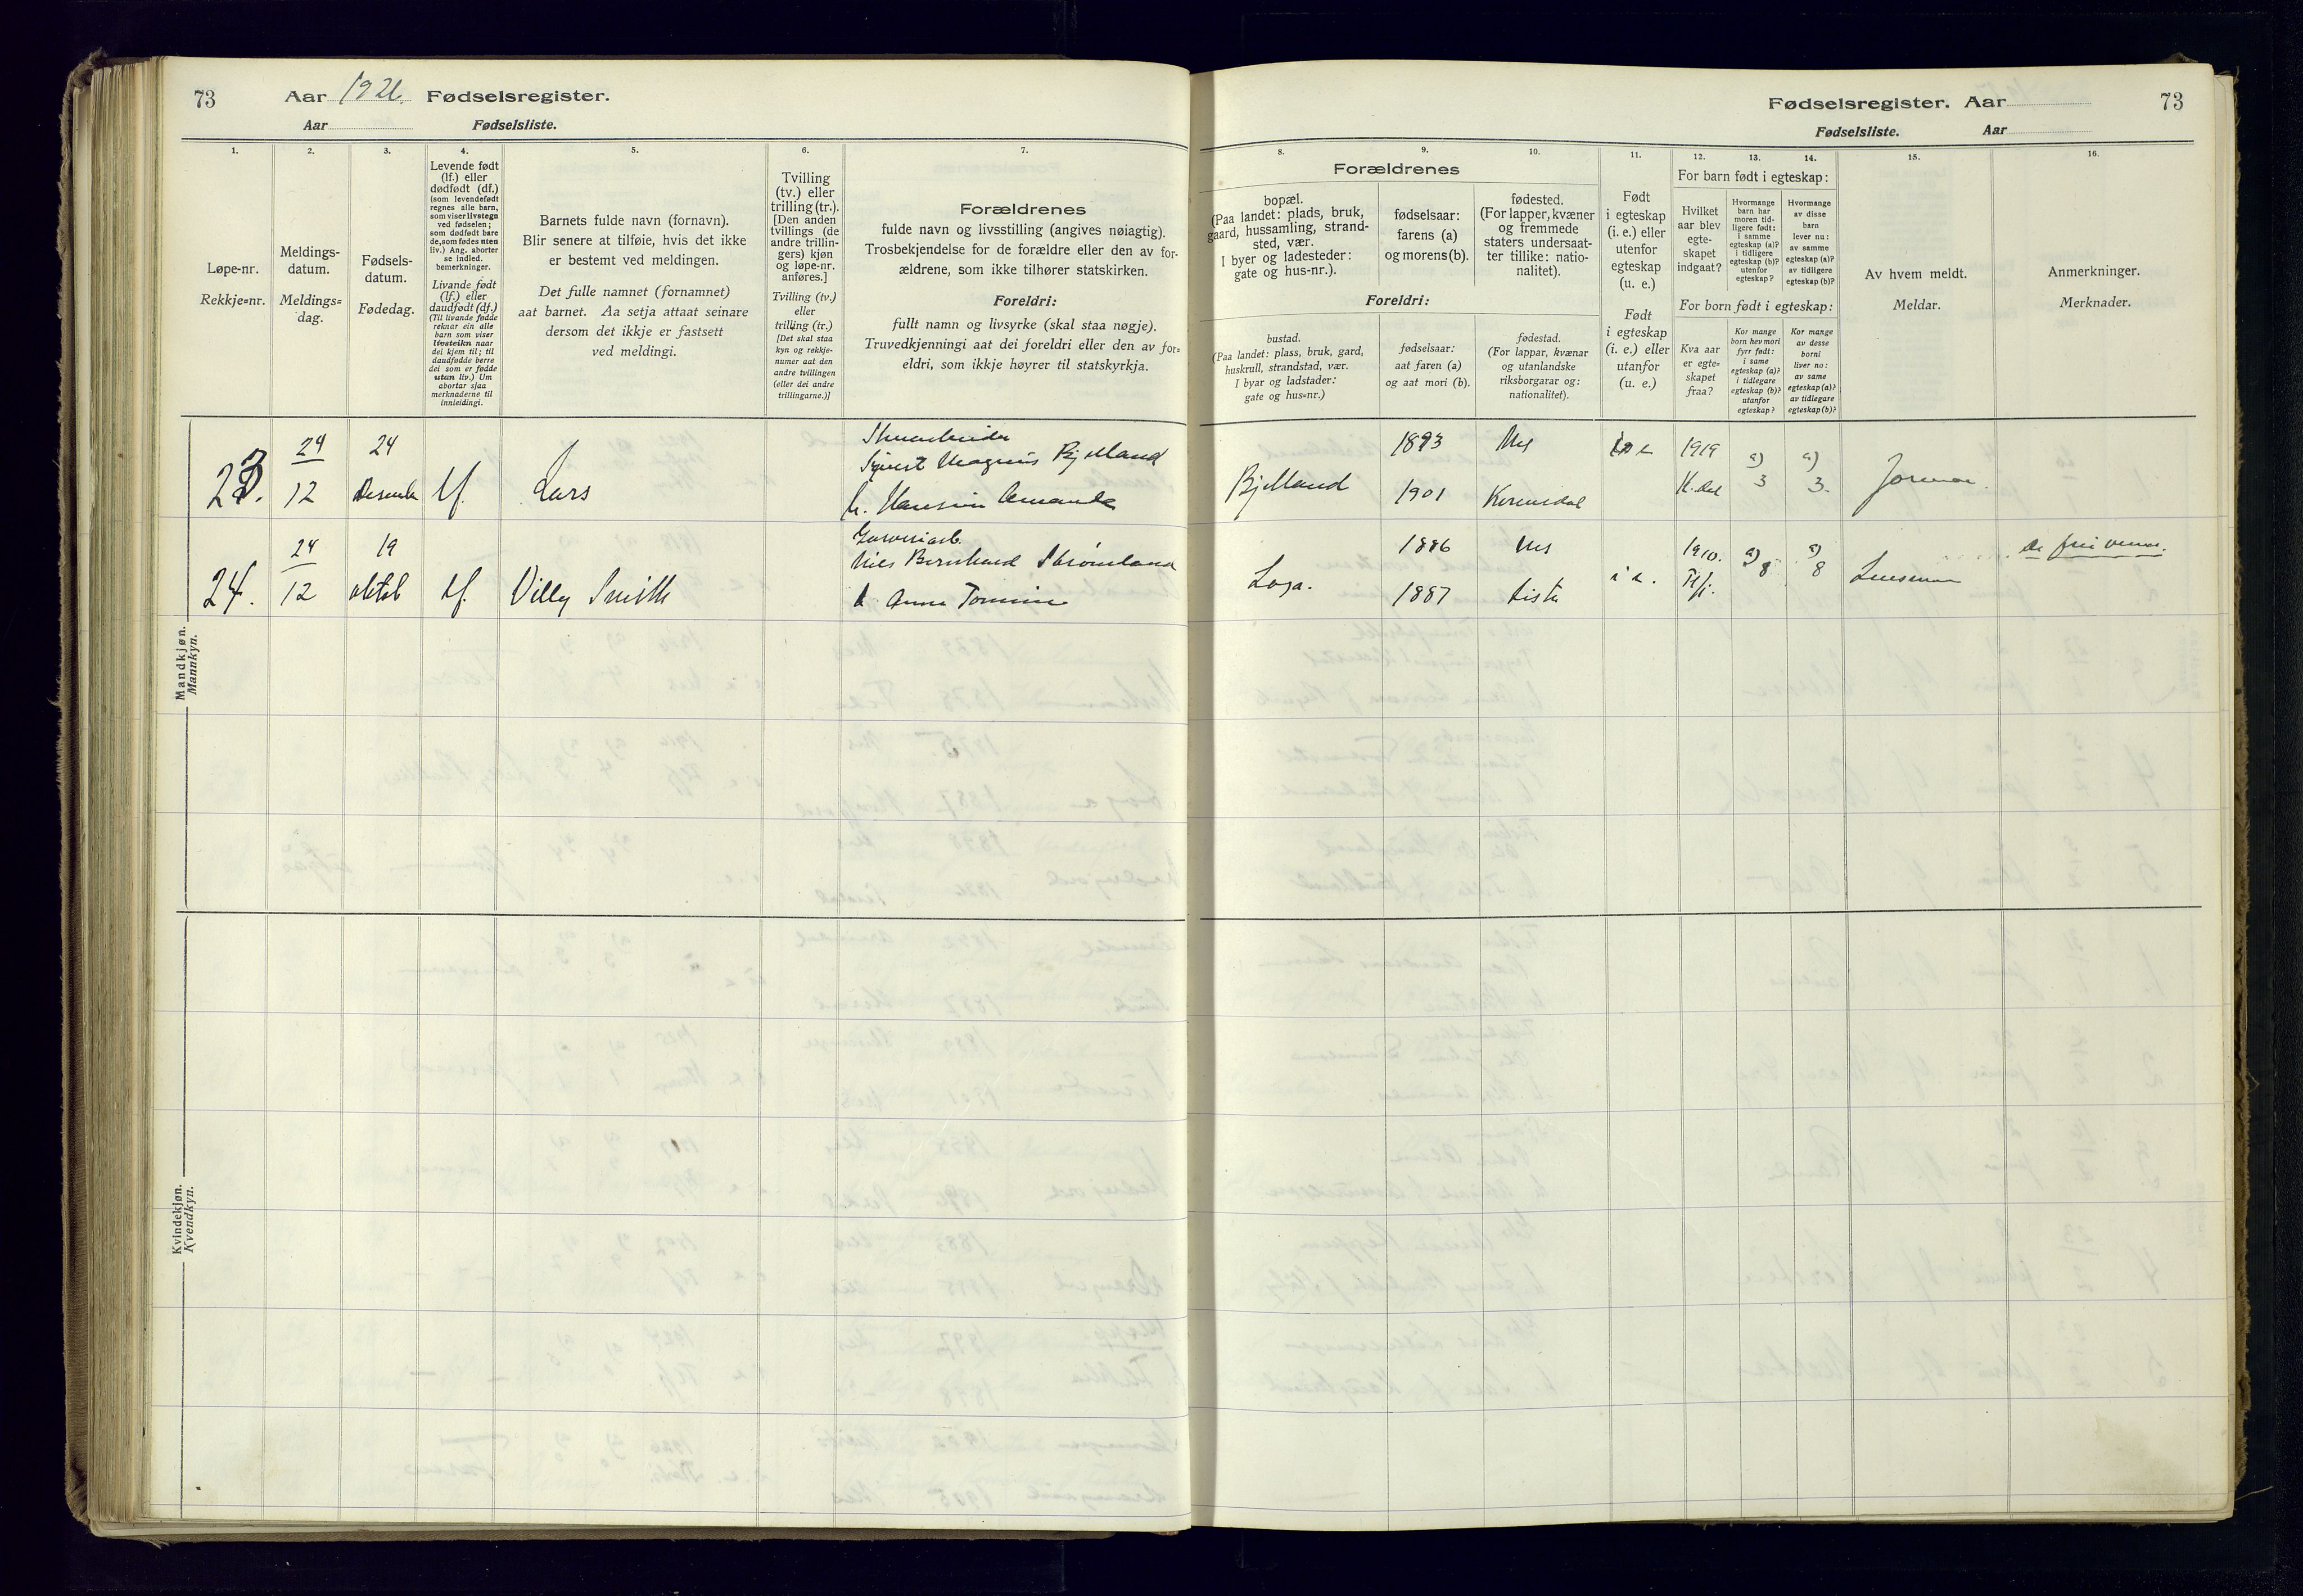 73
Aar 1926. Fødselsregister.
Aar Fødselsliste.
Fødselsregister. Aar
73
Fødselsliste. Aar
1.
Løpe-nr.
Rekkje=nr.
2.
Meldings-
datum.
Meldings=
dag.
3.
Fødsels-
datum.
Fødedag.
4.
Levende født
(lf.) eller
dødfødt (df.)
(som levendefødt
regnes alle barn,
som viser livstegn
ved fødselen;
som dødfødt bare
de, som fødes uten
liv.) Ang. aborter
se indled.
bemerkninger.
Livande født
(lf.) eller
daudfødt (df.)
(Til livande fødde
reknar ein alle
born som viser
livsteikn naar
dei kjem til; til
daudfødde berre
dei som er fødde
utan liv.) Um
abortar sjaa
merknaderne til
innleidingi.
5.
Barnets fulde navn (fornavn).
Blir senere at tilføie, hvis det ikke
er bestemt ved meldingen.
Det fulle namnet (fornamnet)
aat barnet. Aa setja attaat seinare
dersom det ikkje er fastsett
ved meldingi.
6.
Tvilling
(tv.) eller
trilling (tr.).
[Den anden
tvillings (de
andre trillin-
gers) kjøn
og løpe-nr.
anføres.]
Tvilling (tv.)
eller
trilling (tr.)
[Det skal staa
kyn og rekkje-
numer aat den
andre tvillingen
(eller dei andre
trillingarne.)]
7.
Forældrenes
fulde navn og livsstilling (angives nøiagtig).
Trosbekjendelse for de forældre eller den av for-
ældrene, som ikke tilhører statskirken.
Foreldri:
fullt namn og livsyrke (skal staa nøgje).
Truvedkjenningi aat dei foreldri eller den av for=
eldri, som ikkje høyrer til statskyrkja.
Forældrenes
8.
bopæl.
(Paa landet: plads, bruk,
gaard, hussamling, strand-
sted, vær.
I byer og ladesteder:
gate og hus-nr.).
9.
fødselsaar:
farens (a)
og morens (b).
10.
fødested.
(For lapper, kvæner
og fremmede
staters undersaat-
ter tillike: natio-
nalitet).
Foreldri:
bustad.
(Paa landet: plass, bruk, gard,
huskrull, strandstad, vær.
I byar og ladstader:
gate og hus=nr.)
fødselsaar:
aat faren (a)
og aat mori (b).
fødestad.
(For lappar, kvænar
og utanlandske
riksborgarar og:
nationalitet).
11.
Født
i egteskap
(i. e.) eller
utenfor
egteskap
(u. e.)
Født
i egteskap
(i. e.) eller
utanfor
(u. e.)
For barn født i egteskap:
12.
Hvilket
aar blev
egte-
skapet
indgaat?
13.
Hvormange
barn har
moren tid-
ligere født:
i samme
egteskap (a)?
i tidligere
egteskap (b)?
utenfor
egteskap?
14.
Hvormange
av disse
barn
lever nu:
av samme
egteskap (a)?
av tidligere
egteskap (b)?
For born født i egteskap:
Kva aar
er egte=
skapet
fraa?
Kor mange
born hev mori
fyrr født:
i same
egteskap (a)?
i tidlegare
egteskap (b)?
utanfor
egteskap?
Kor mange
av desse
borni
liver no:
av same
egteskap (a)?
av tidlegare
egteskap (b)?
15.
Av hvem meldt.
Meldar.
16.
Anmerkninger.
Merknader.
Mandkjøn.
Mannkyn.
23. 24/12 24 Lf. Lars
Magnus Bjelland
Bjelland 1893 Nes 1919 a) 3 a) 3.
1901
24. 24/12 19 Lf. Villy Smith
Nils Bernhard Strømland
Anna Tomine
Loga. 1886 Nes i e. 1910. a) 8 a) 8
1887 Lista
Kvindekjøn.
Kvendkyn.